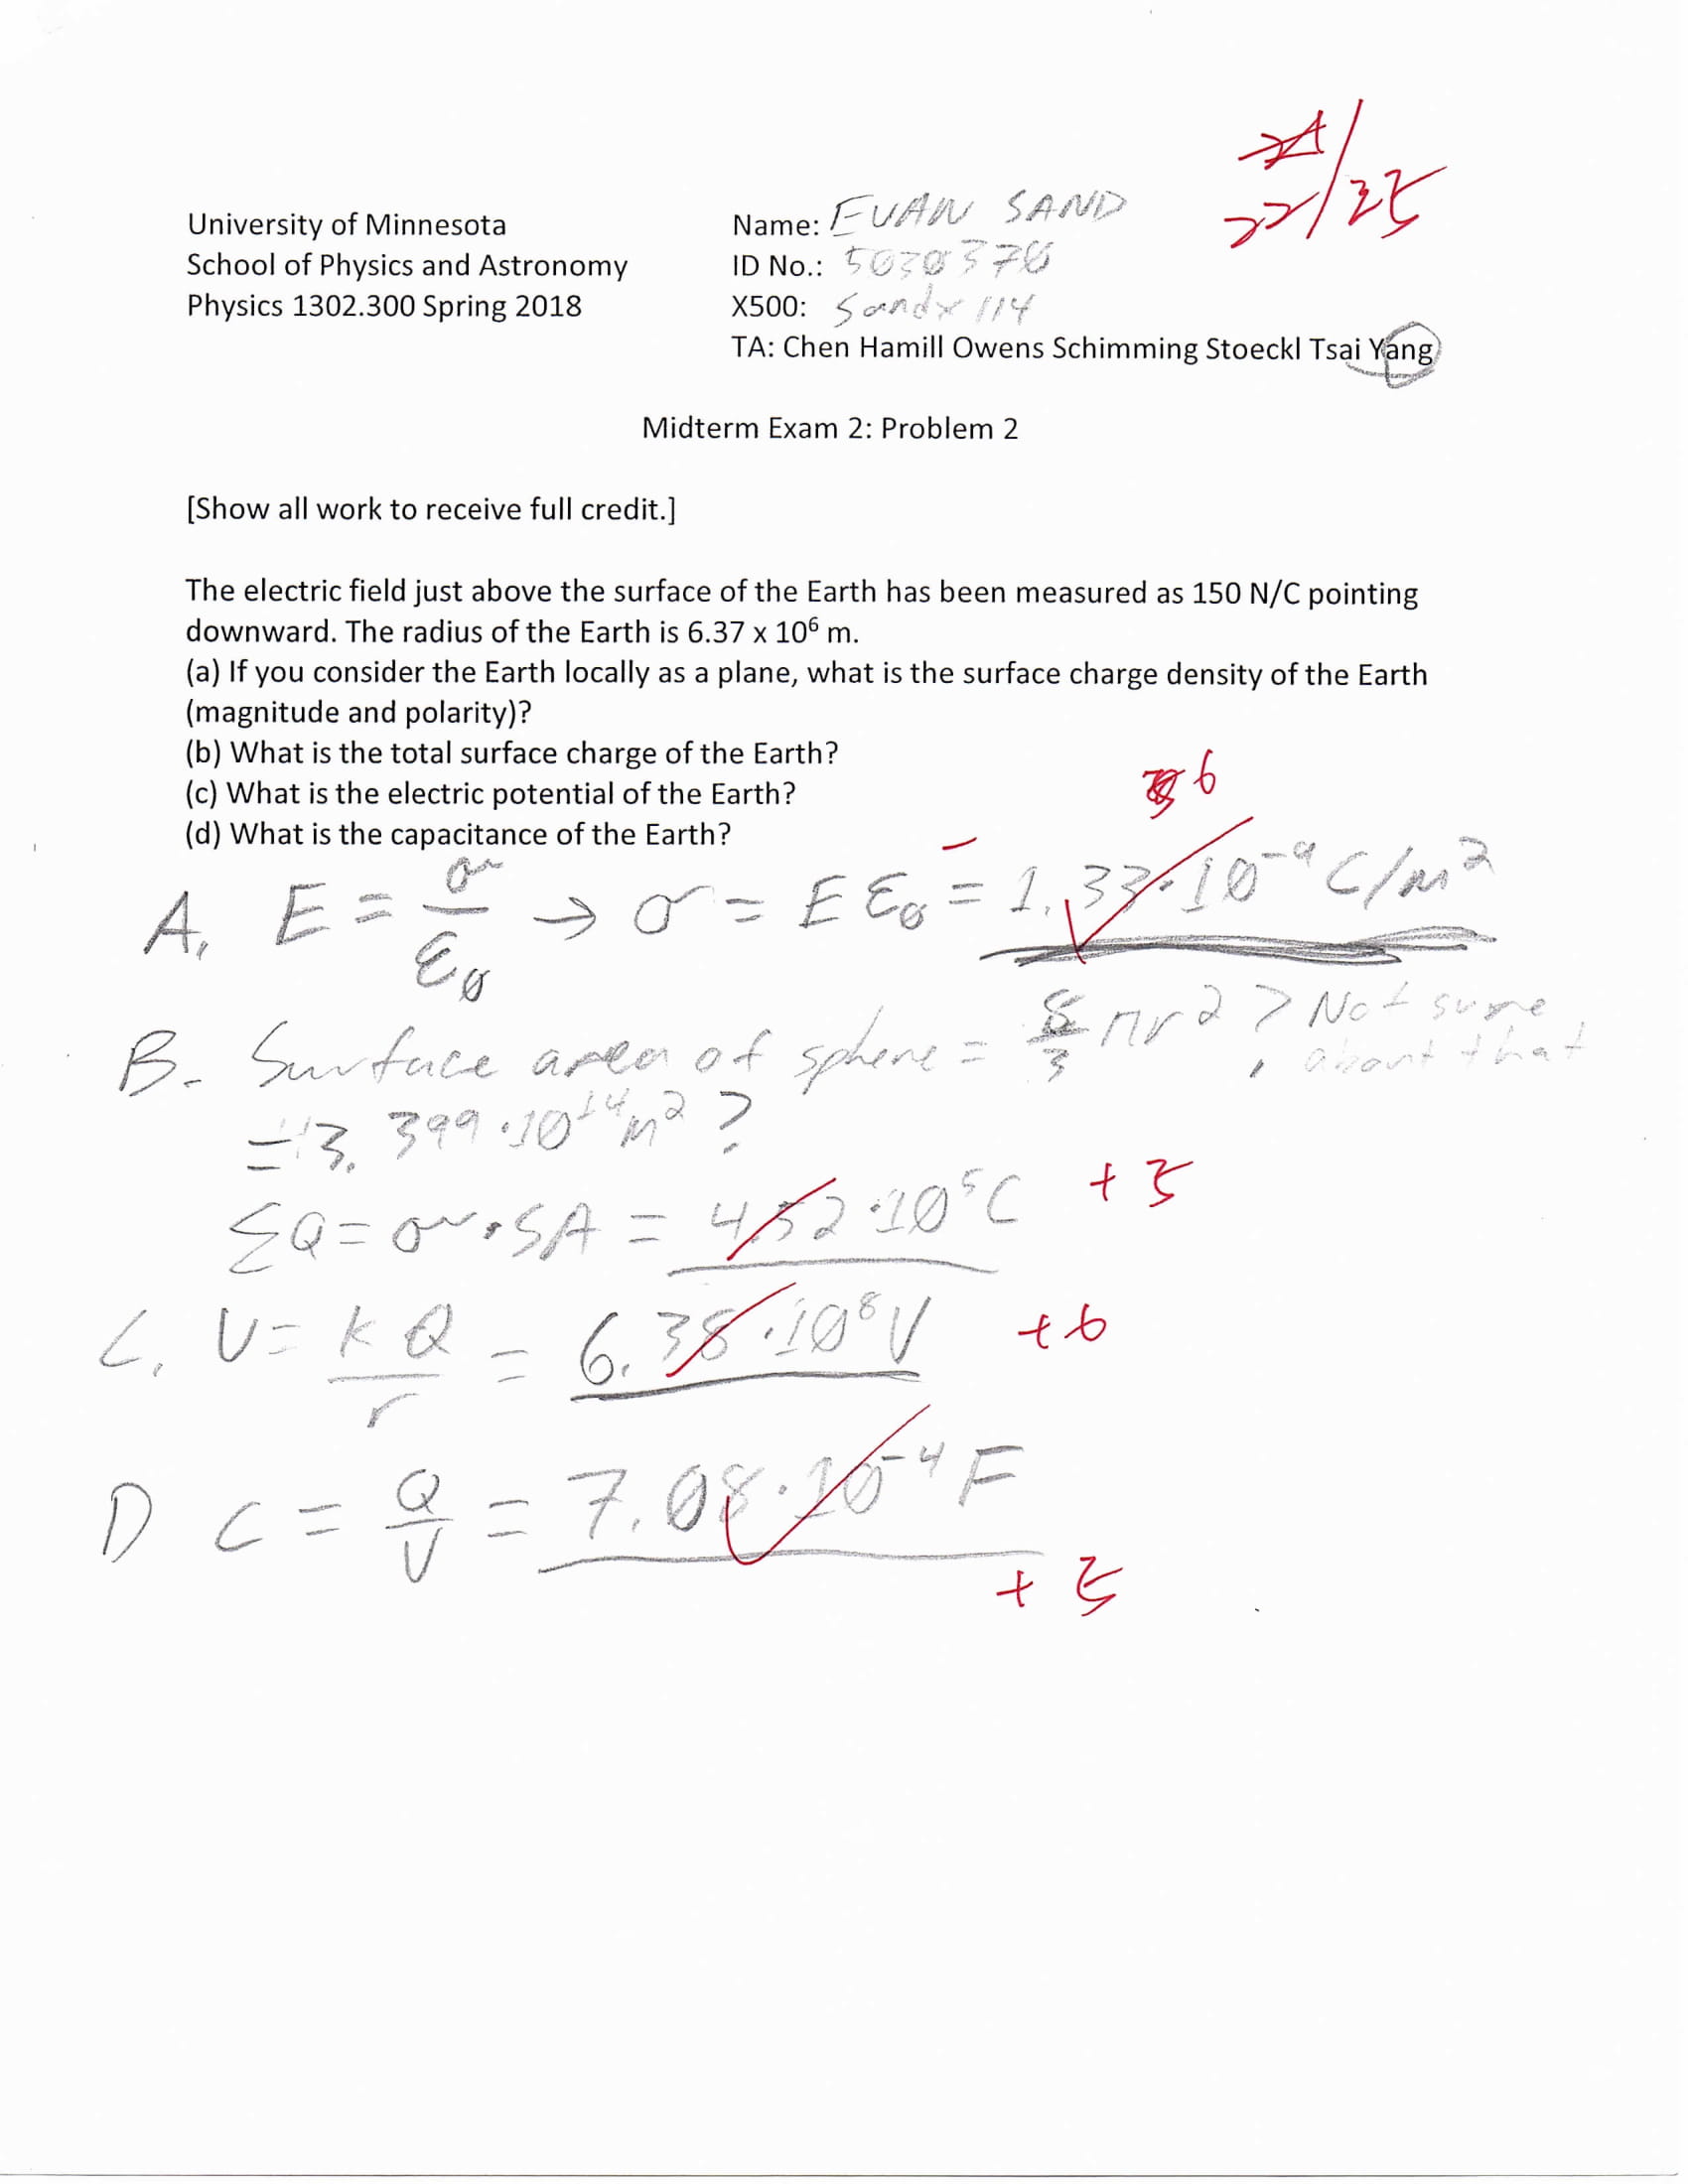 24/
22/25
University of Minnesota
School of Physics and Astronomy
Physics 1302.300 Spring 2018
Name: EVAN SAND
ID No.: 5030370
X500: Sandx114
TA: Chen Hamill Owens Schimming Stoeckl Tsai Yang
Midterm Exam 2: Problem 2
[Show all work to receive full credit.]
The electric field just above the surface of the Earth has been measured as 150 N/C pointing
downward. The radius of the Earth is 6.37 x 10⁶ m.
(a) If you consider the Earth locally as a plane, what is the surface charge density of the Earth
(magnitude and polarity)?
(b) What is the total surface charge of the Earth?
(c) What is the electric potential of the Earth?
(d) What is the capacitance of the Earth?
6
A. E = σ/ε₀ → σ = E ε₀ = − 1.33·10⁻⁹ C/m²
B. Surface area of sphere = 8/3 πr² ? Not sure about that
= 3.399·10¹⁴ m² ?
ΣQ = σ·SA = 4.52·10⁵ C +5
C. V = kQ/r = 6.38·10⁸ V +6
D C = Q/V = 7.08·10⁻⁴ F
+5